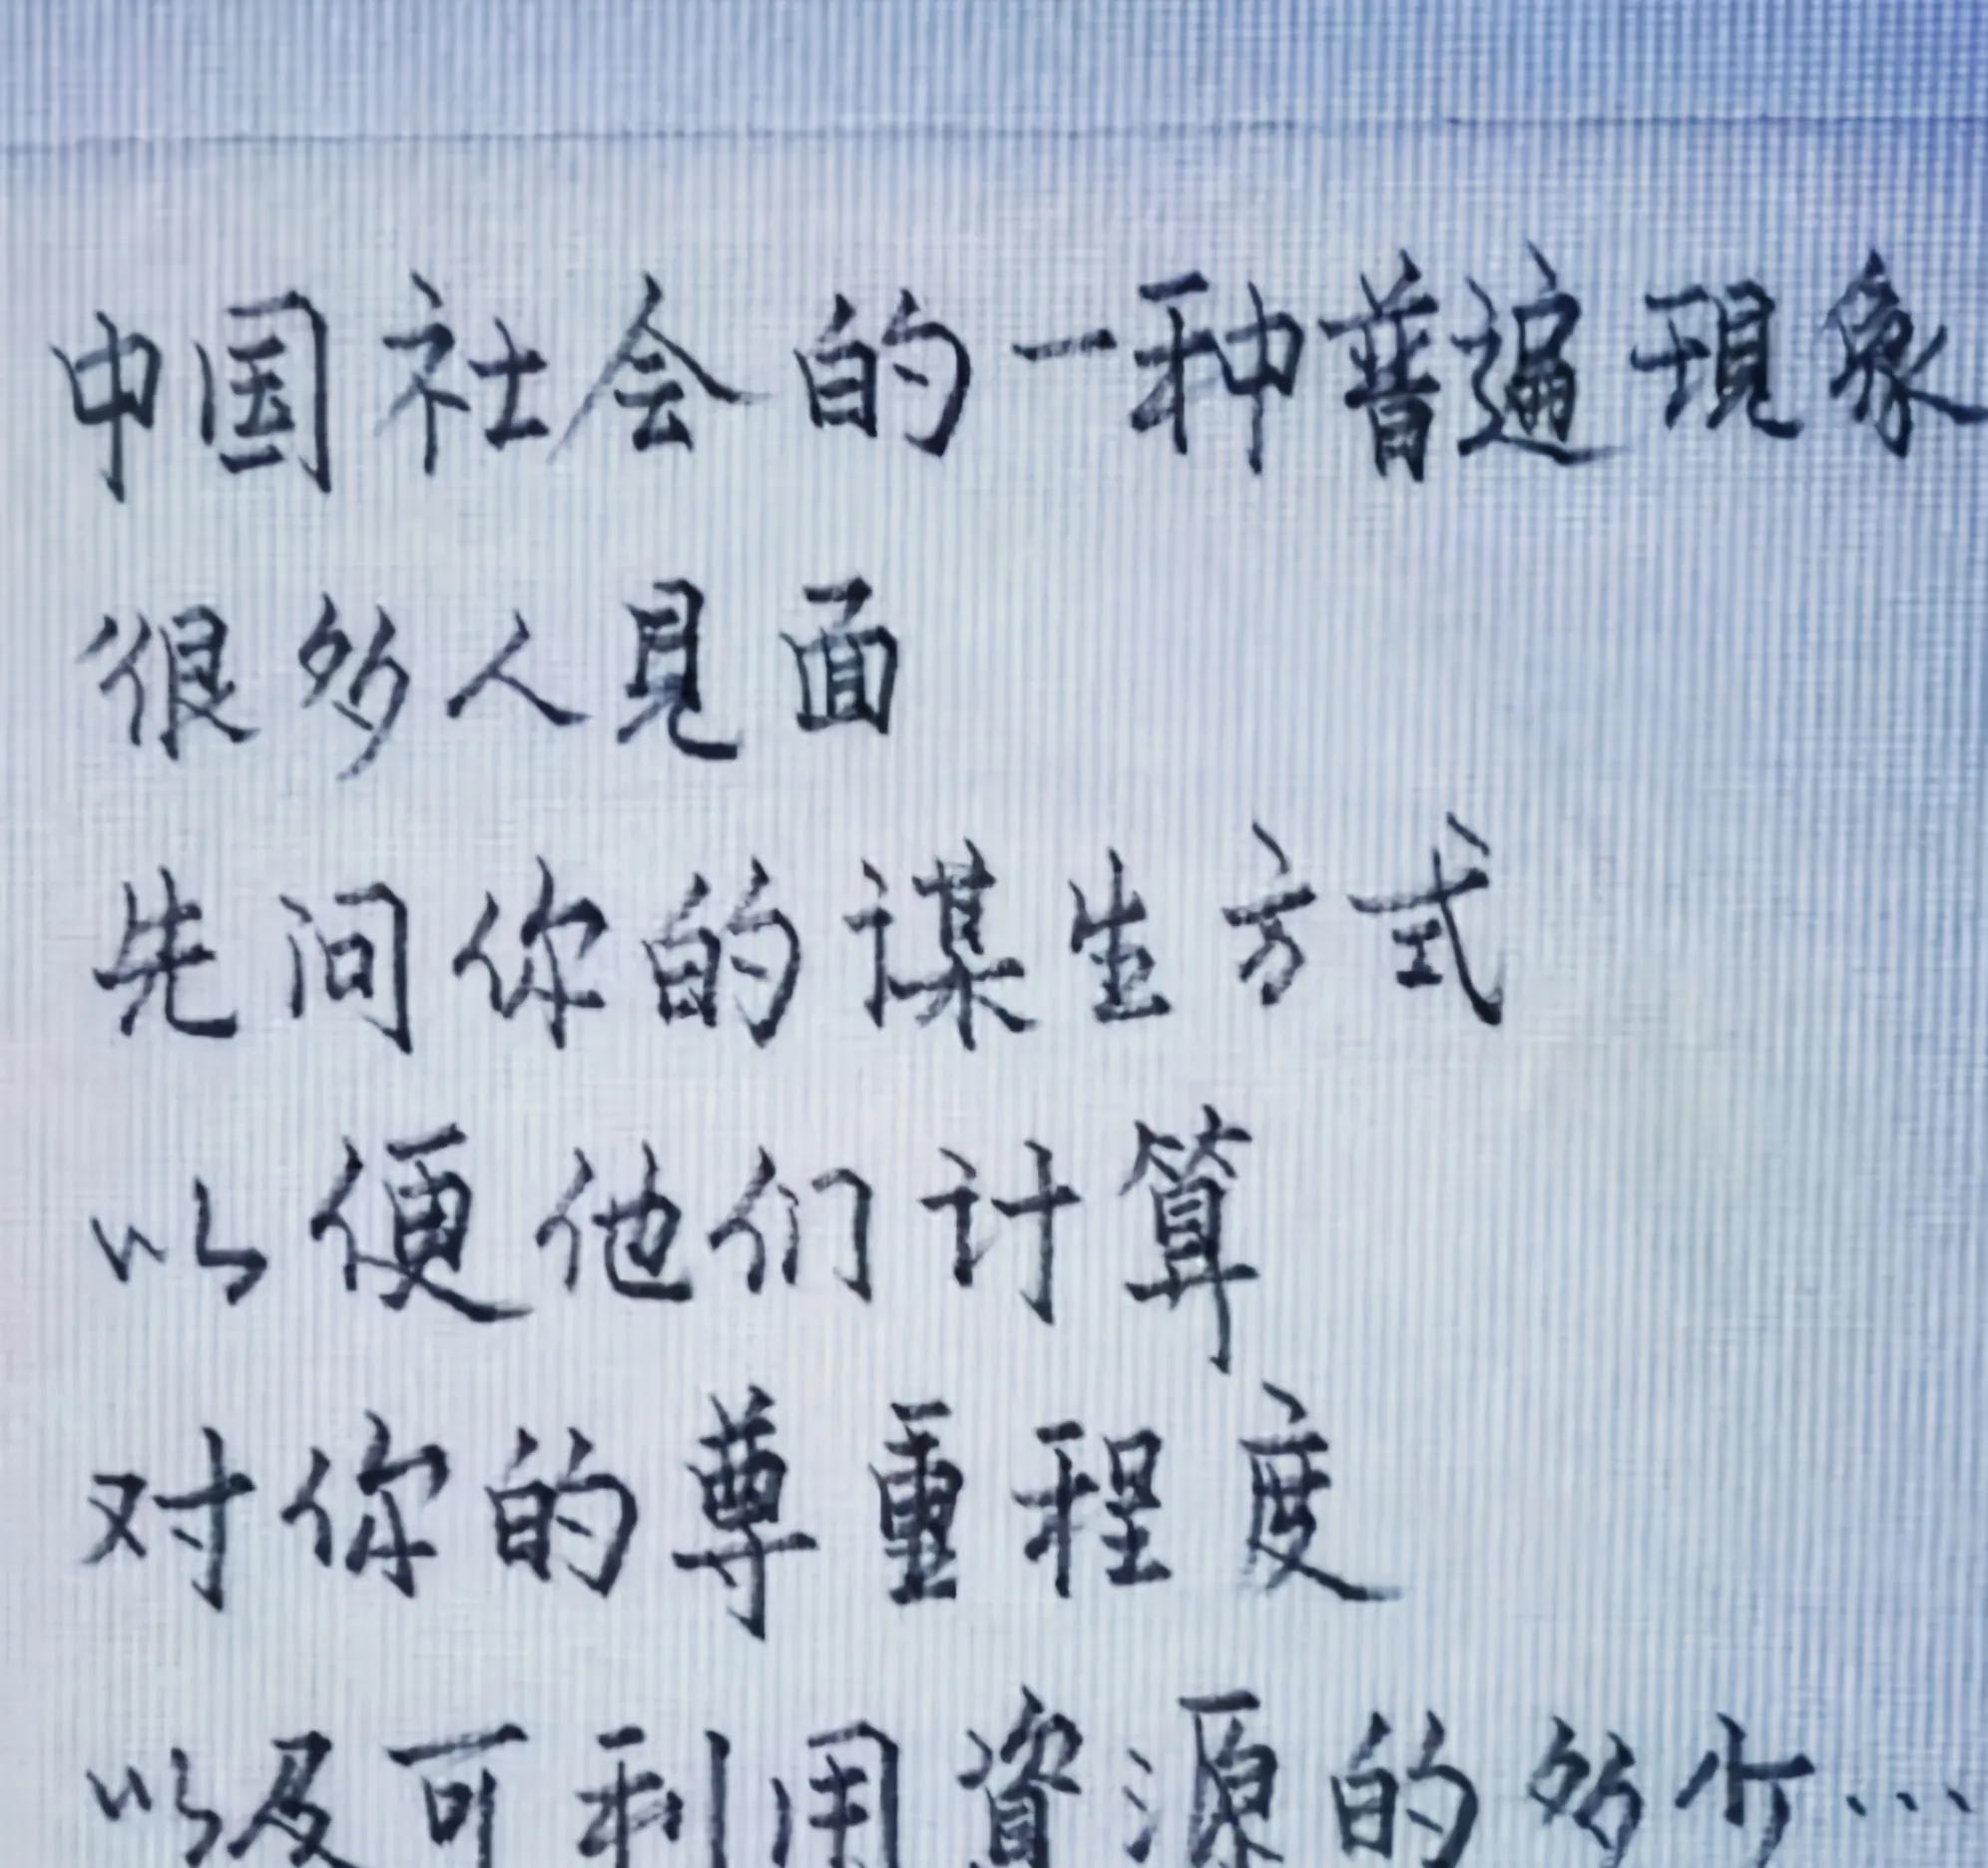 中国社会的一种普遍現象
很多人見面
先问你的谋生方式
以便他们计算
对你的尊重程度
以及可利用資源的多少…